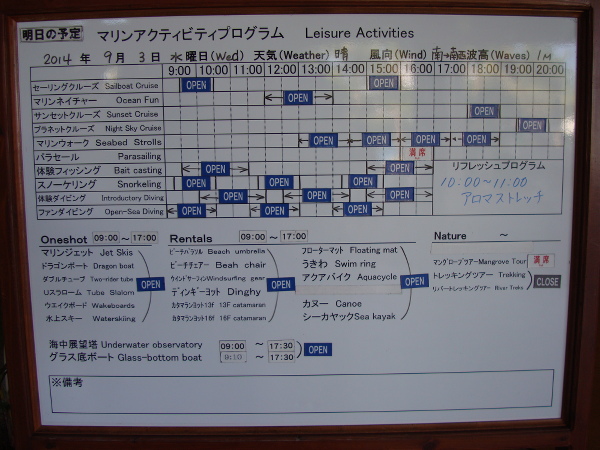 明日の予定 マリンアクティビティプログラム Leisure Activities
2014 年 9月 3日 水曜日(Wed) 天気(Weather) 晴 風向(Wind) 南→南西 波高(Waves) 1M
9:00 10:00 11:00 12:00 13:00 14:00 15:00 16:00 17:00 18:00 19:00 20:00
セーリングクルーズ Sailboat Cruise OPEN OPEN
マリンネイチャー Ocean Fun OPEN
サンセットクルーズ Sunset Cruise OPEN
プラネットクルーズ Night Sky Cruise OPEN
マリンウォーク Seabed Strolls OPEN OPEN OPEN OPEN
パラセール Parasailing 満席
体験フィッシング Bait casting OPEN OPEN
スノーケリング Snorkeling OPEN OPEN OPEN
体験ダイビング Introductory Diving OPEN OPEN OPEN OPEN
ファンダイビング Open-Sea Diving OPEN OPEN OPEN
リフレッシュプログラム
10:00～11:00
アロマストレッチ
Oneshot 09:00 ～ 17:00
マリンジェット Jet Skis
ドラゴンボート Dragon boat
ダブルチューブ Two-rider tube
Uスラローム Tube Slalom
ウエイクボード Wakeboards
水上スキー Waterskiing
OPEN
Rentals 09:00 ～ 17:00
ビーチパラソル Beach umbrella
ビーチチェアー Beah chair
ウインドサーフィン Windsurfing gear
ディンギーヨット Dinghy
カタマランヨット13f 13F catamaran
カタマランヨット16f 16F catamaran
OPEN
フローターマット Floating mat
うきわ Swim ring
アクアバイク Aquacycle
カヌー Canoe
シーカヤック Sea kayak
OPEN
Nature ～
マングローブツアー Mangrove Tour 満席
トレッキングツアー Trakking
リバートレッキングツアー River Treks
CLOSE
海中展望塔 Underwater observatory 09:00 ～ 17:30
グラス底ボート Glass-bottom boat 9:10 ～ 17:30
OPEN
※備考